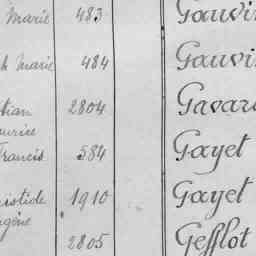 Marie 483 Gauvi
h Marie 484 Gauvi
tian 2804 Gavar
urice
Francis 584 Gayet
istide 1910 Gayet
ugène
2805 Gefflot